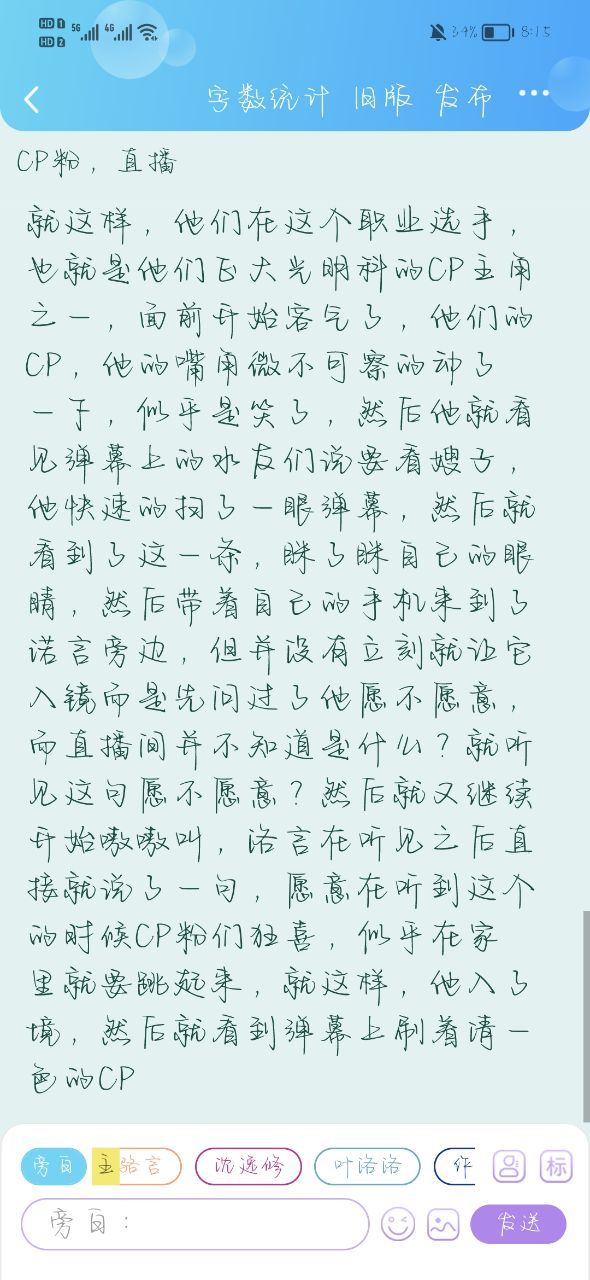 HD 1 5G 4G 34% 8:15
HD 2
字数统计 旧版 发布
CP粉，直播
就这样，他们在这个职业选手，
也就是他们正大光明科的CP主角
之一，面前开始客气了，他们的
CP，他的嘴角微不可察的动了
一下，似乎是笑了，然后他就看
见弹幕上的水友们说要看嫂子，
他快速的扫了一眼弹幕，然后就
看到了这一条，眯了眯自己的眼
睛，然后带着自己的手机来到了
诺言旁边，但并没有立刻就让它
入镜而是先问过了他愿不愿意，
而直播间并不知道是什么？就听
见这句愿不愿意？然后就又继续
开始嗷嗷叫，洛言在听见之后直
接就说了一句，愿意在听到这个
的时候CP粉们狂喜，似乎在家
里就要跳起来，就这样，他入了
境，然后就看到弹幕上刷着清一
色的CP
旁白 主 骆言 沈逸修 叶洛洛 作 标
旁白：
发送